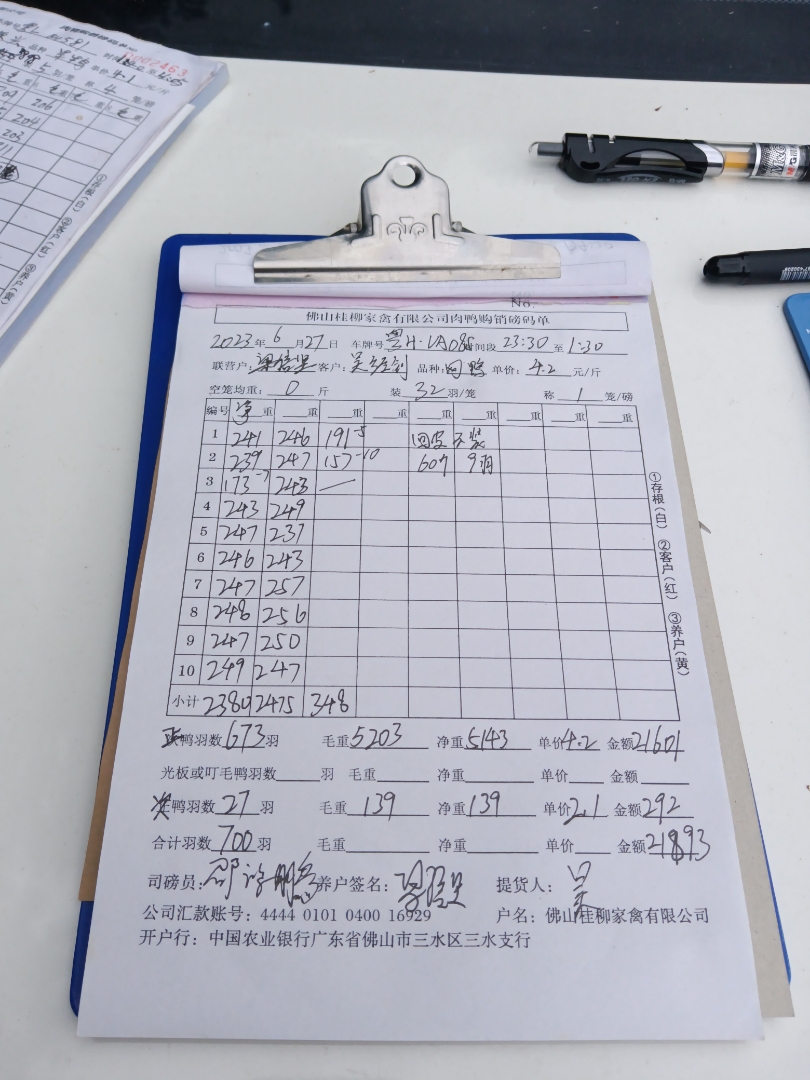 0002463
4.1 元/斤
4
206
204
203
①存根(白) ②客户(红) ③养户(黄)
M&G
No.
佛山桂柳家禽有限公司肉鸭购销磅码单
2023年6月27日 车牌号 时间段 23:30 至 1:30
联营户: 客户: 品种: 单价: 4.2 元/斤
空笼均重: 0 斤 装 32 羽/笼 称 1 笼/磅
编号 净重 重 重 重 重 重 重 重 重
1 241 246 191-5 回皮 不装
2 239 247 157-10 60斤 9羽
3 173-7 243 —
4 243 249
5 247 237
6 246 243
7 247 257
8 248 256
9 247 250
10 249 247
小计 2380 2475 348
①存根(白) ②客户(红) ③养户(黄)
鸭羽数 673 羽 毛重 5203 净重 5143 单价 4.2 金额 21601
光板或叮毛鸭羽数 羽 毛重 净重 单价 金额
鸭羽数 27 羽 毛重 139 净重 139 单价 2.1 金额 292
合计羽数 700 羽 毛重 净重 单价 金额 21893
司磅员: 养户签名: 提货人: 吴
公司汇款账号: 4444 0101 0400 16929 户名: 佛山桂柳家禽有限公司
开户行: 中国农业银行广东省佛山市三水区三水支行